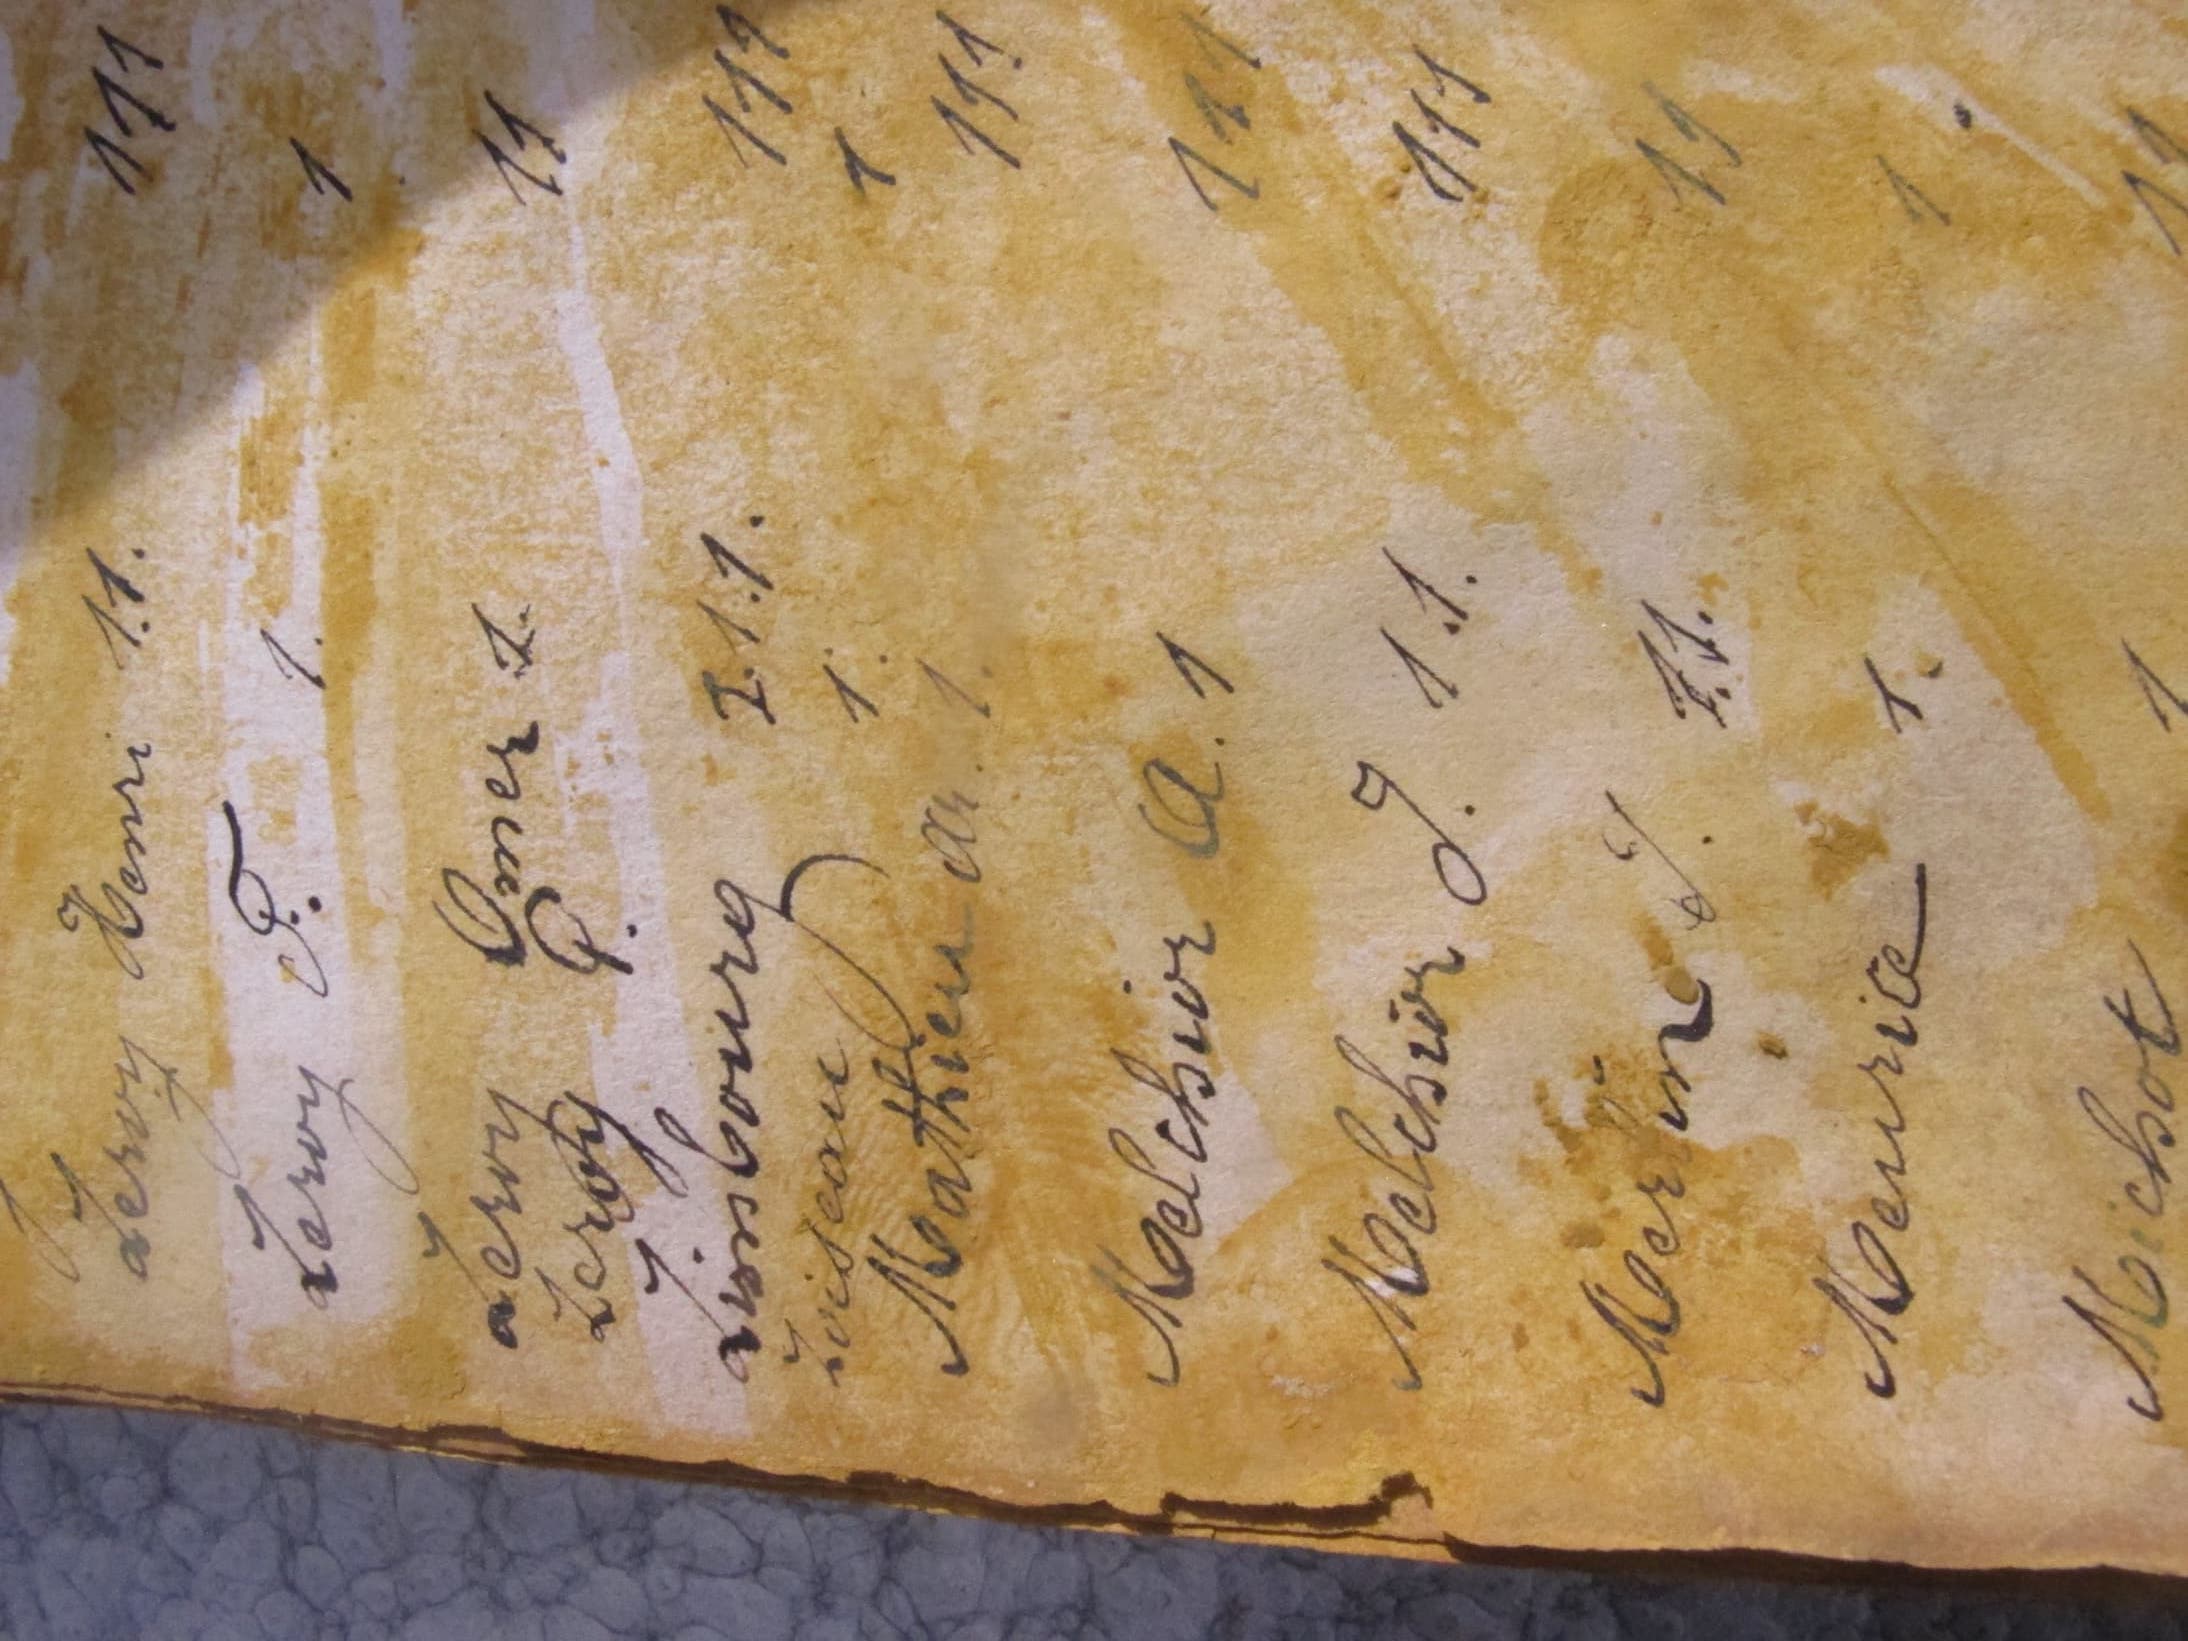 Leroy Henri 1.1. 111
Leroy F. 1. 1
Leroy Omer 1. 11
Leroy P.
Limbourg 1.1.1. 111
Loiseau 1. 1
Mathieu A. 1. 111
Melchior A. 1 111
Melchior J. 1 1. 111
Merlin J. 1.1. 11
Meurice 1. 1
Michot 1 11